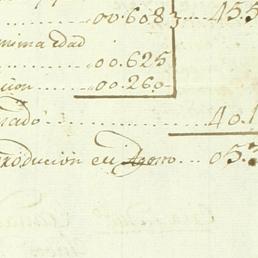 ..00.608 3.... 45.5
minima edad
.....00.625
cion....00.260
ado.......40.1
roducion en Agosto...05.3